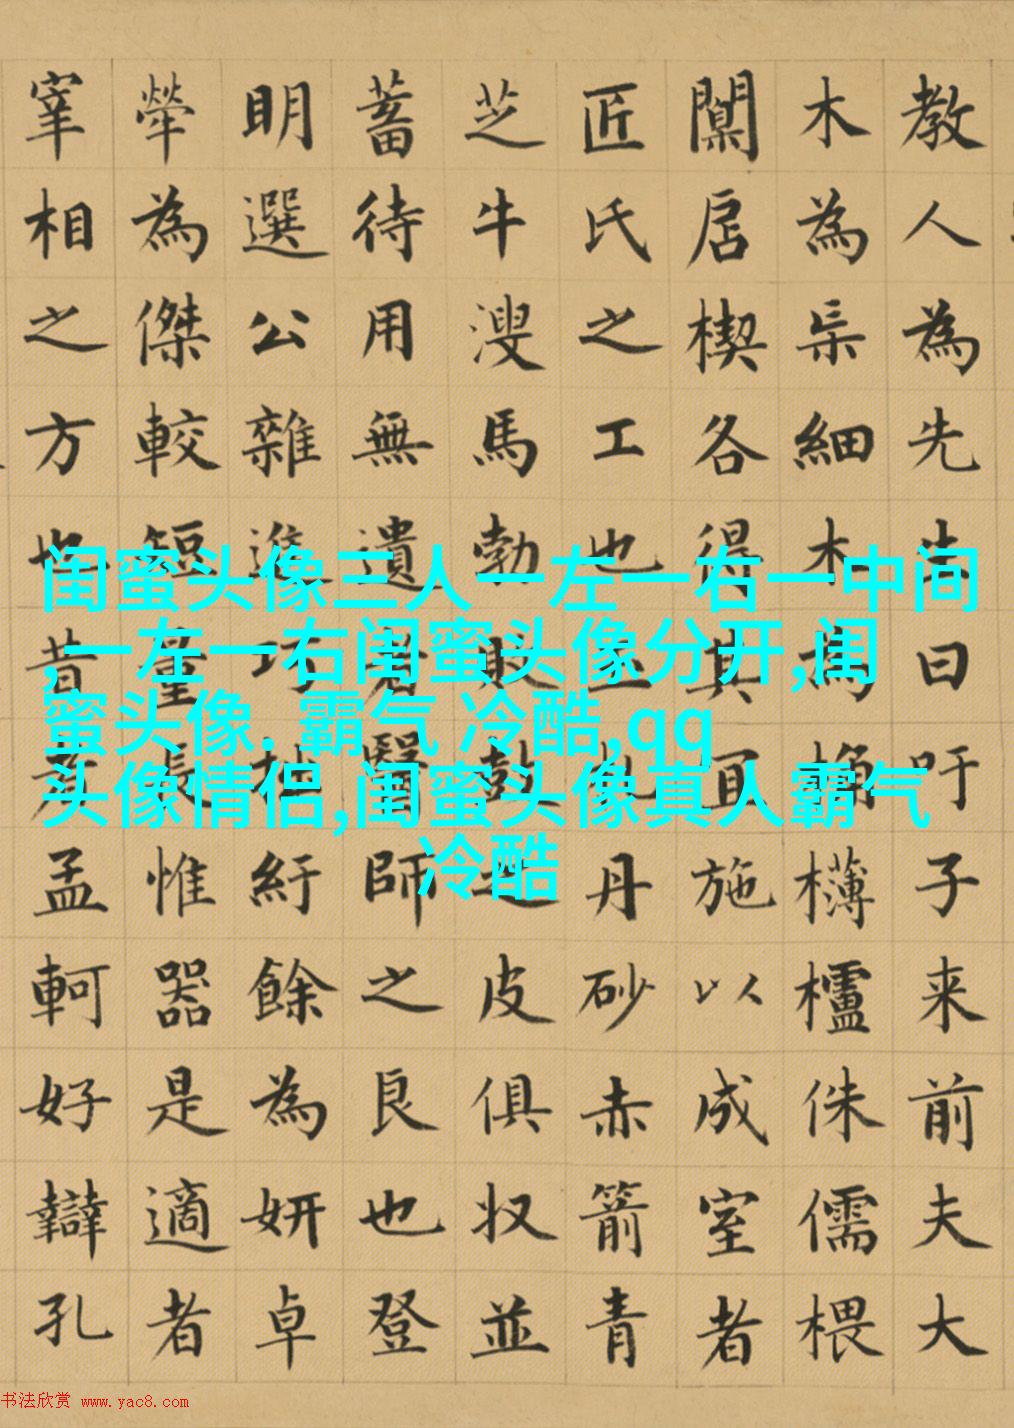 教人為先生曰吁子来前夫大
木為杗細木為桷欂櫨侏儒椳
闑扂楔各得其宜施以成室者
匠氏之工也玉札丹砂赤箭青
芝牛溲馬勃敗鼓之皮俱收並
蓄待用無遺者醫師之良也登
明選公雜進巧拙紆餘為妍卓
犖為傑較短量長惟器是適者
宰相之方也昔者孟軻好辯孔
闺蜜头像三人一左一右一中间
,一左一右闺蜜头像分开,闺
蜜头像. 霸气 冷酷,qq
头像情侣,闺蜜头像真人霸气
冷酷
书法欣赏 www.yac8.com